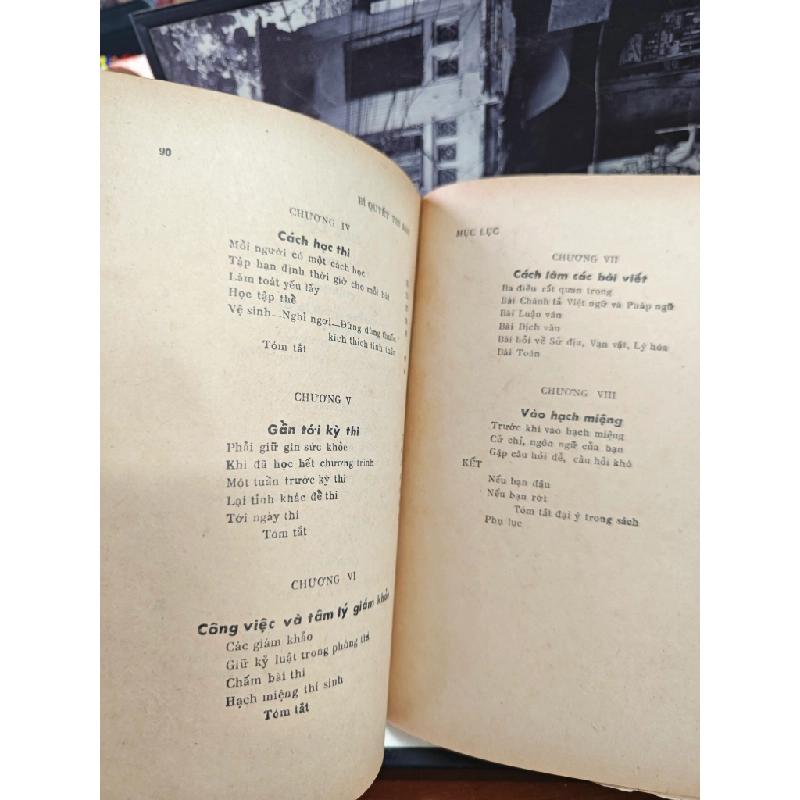 90
BÍ QUYẾT THI ĐẬU
CHƯƠNG IV
Cách học thi
Mỗi người có một cách học
Tập hạn định thời giờ cho mỗi bài
Làm toát yếu lấy
Học tập thể
Vệ sinh—Nghỉ ngơi—Đừng dùng thuốc
kích thích tinh thần
Tóm tắt
CHƯƠNG V
Gần tới kỳ thi
Phải giữ gìn sức khỏe
Khi đã học hết chương trình
Một tuần trước kỳ thi
Lại tỉnh khác để thi
Tới ngày thi
Tóm tắt
CHƯƠNG VI
Công việc và tâm lý giám khảo
Các giám khảo
Giữ kỷ luật trong phòng thi
Chấm bài thi
Hạch miệng thí sinh
Tóm tắt
MỤC LỤC
CHƯƠNG VII
Cách làm các bài viết
Ba điều rất quan trọng
Bài Chánh tả Việt ngữ và Pháp ngữ
Bài Luận văn
Bài Dịch văn
Bài hỏi về Sử địa, Vạn vật, Lý hóa
Bài Toán
CHƯƠNG VIII
Vào hạch miệng
Trước khi vào hạch miệng
Cử chỉ, ngôn ngữ của bạn
Gặp câu hỏi dễ, câu hỏi khó
KẾT
Nếu bạn đậu
Nếu bạn rớt
Tóm tắt đại ý trong sách
Phụ lục